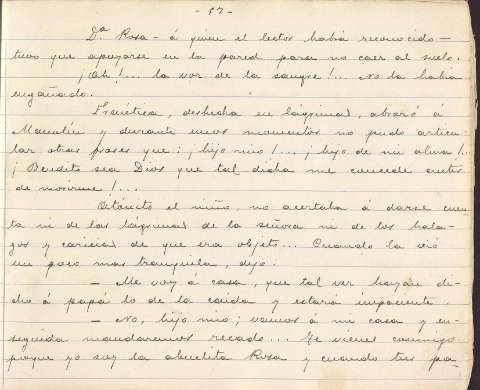 - 57 -
D.ª Rosa - á quien el lector habrá reconocido -
tuvo que apoyarse en la pared para no caer al suelo.
¡Ah!... la voz de la sangre!... No la había
engañado.
Frenética, deshecha en lágrimas, abrazó á
Manolín y durante unos momentos no pudo articu-
lar otras frases que: ¡hijo mio!... ¡hijo de mi alma!..
¡Bendito sea Dios que tal dicha me concede antes
de morirme!...
Atónito el niño, no acertaba á darse cuen-
ta ni de las lágrimas de la señora ni de los hala-
gos y caricias de que era objeto... Cuando la vió
un poco mas tranquila, dijo:
- Me voy á casa, que tal vez hayan di-
cho á papá lo de la caida y estará impaciente.
- No, hijo mio; vamos á mi casa y en-
seguida mandaremos recado... Te vienes conmigo
porque yo soy la abuelita Rosa y cuando tus pa-